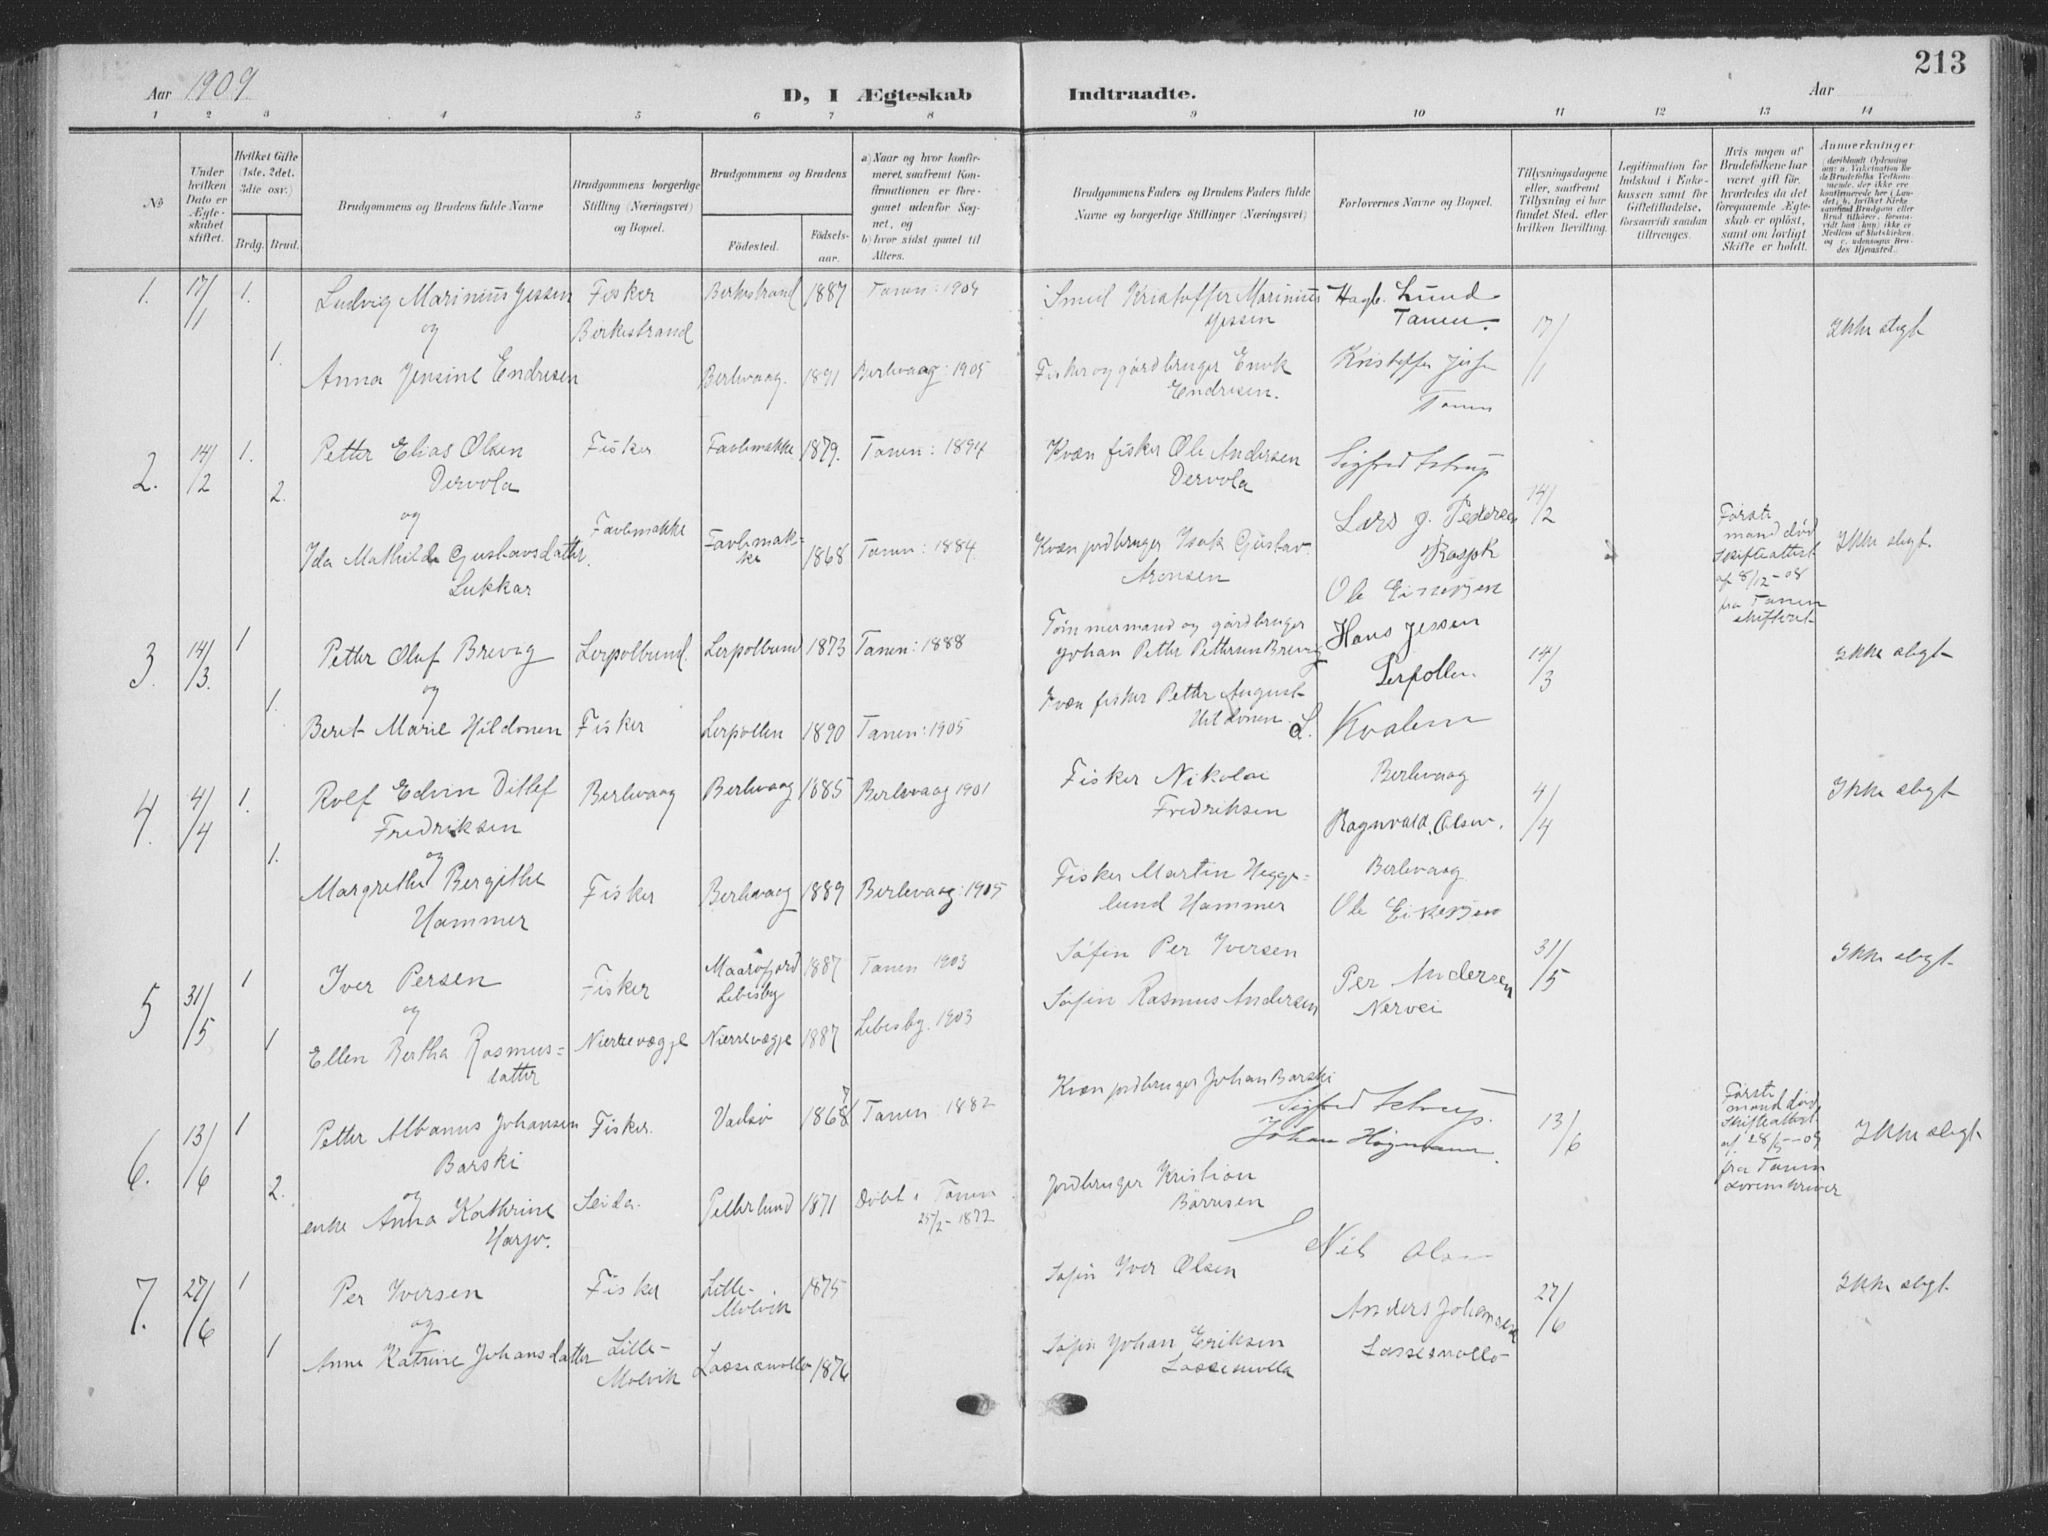 213
Aar 1909.
D, I Ægteskab Indtraadte.
Aar
1 2 3 4 5 6 7 8 9 10 11 12 13 14
No
Under hvilken Dato er Ægteskabet stiftet.
Hvilket Gifte (1ste, 2det, 3die osv.)
Brdg. Brud.
Brudgommens og Brudens fulde Navne
Brudgommens borgerlige Stilling (Næringsvei) og Bopæl.
Brudgommens og Brudens
Fødested.
Fødselsaar.
a) Naar og hvor konfirmeret, saafremt Konfirmationen er foregaaet udenfor Sognet, og
b) hvor sidst gaaet til Alters.
Brudgommens Faders og Brudens Faders fulde
Navne og borgerlige Stillinger (Næringsvei)
Forlovernes Navne og Bopæl.
Tillysningsdagene eller, saafremt Tillysning ei har fundet Sted, efter hvilken Bevilling.
Legitimation for Indskud i Enkekassen samt for Giftetilladelse, forsaavidt saadan tiltrænges.
Hvis nogen af Brudefolkene har været gift før, hvorledes da det foregaaende Ægteskab er opløst, samt om lovligt Skifte er holdt.
Anmerkninger
1. 17/1 1. Ludvig Marinius Jessen Fisker Birkestrand 1887 Tanen: 1904 Smed Kristoffer Marinius Jessen Hagb. Lund Tanen. 17/1 Ikke slegt
og Birkestrand
1. Anna Jensine Endresen Berlevaag. 1891 Berlevaag: 1905 Fisker og gårdbruger Enok Endresen. Kristoffer Tanen
2. 14/2 1. Petter Elias Olsen Dervola Fisker Favlemakke 1879. Tanen: 1894 Kvæn fisker Ole Andersen Dervola Sigfred 14/2 Ikke slegt.
og Favlemakke
2. Ida Mathilde Gustavsdatter Lukkar Favlemakke 1868 Tanen: 1884. Kvæn jordbruger Isak Gustav Aronsen Lars J. Pedersen
Første mand død Skifteattest af 8/12-08 fra Tanen skifteret
3. 14/3. 1 Petter Oluf Brevig Lerpolbund. Lerpolbund 1873 Tanen: 1888 Tømmermand og gårdbruger Johan Petter Pettersen Brevig Hans Jessen Lerpollen 14/3 Ikke slegt
og
1. Berit Marie Hildonen Fisker Lerpollen 1890 Tanen: 1905 Kvæn fisker Petter August Hildonen. L. Kvalem
4. 4/4 1. Rolf Edvin Ditlef Fredriksen Berlevaag Berlevaag 1885 Berlevaag 1901 Fisker Nikolai Fredriksen Berlevaag Ragnvald Olsen. 4/4 Ikke slegt
og
1. Margrethe Bergithe Hammer Fisker Berlevaag 1889 Berlevaag: 1905 Fisker Martin Heggelund Hammer Berlevaag. Ole
5 31/5 1 Iver Persen Fisker Lebisby 1887 Tanen 1903 Søfin Per Iversen Per Andersen Nervei 31/5 Ikke slegt
og
1 Ellen Bertha Rasmusdatter Nierrevægje Nierrevægje 1887 Lebisby. 1903 Søfin Rasmus Andersen
6. 13/6 1 Petter Albanus Johansen Barski Fisker. Vadsø 1868 7 Tanen: 1882 Kvæn jordbruger Johan Barski Sigfred Johan 13/6 Ikke slegt
og
2. enke Anna Kathrine Harju. Seida. Petterlund 1871 Døbt i Tanen 25/2-1872 Jordbruger Kristian Børresen
Første mand død, Skifteattest af 28/5-09 fra Tanen sorenskriver
7. 27/6 1 Per Iversen Fisker Lille-Molvik 1875 Søfin Iver Olsen Nils Olsen 27/6 Ikke slegt
og
1 Anne Katrine Johansdatter Lille-Molvik 1876 Søfin Johan Eriksen Anders Johansen